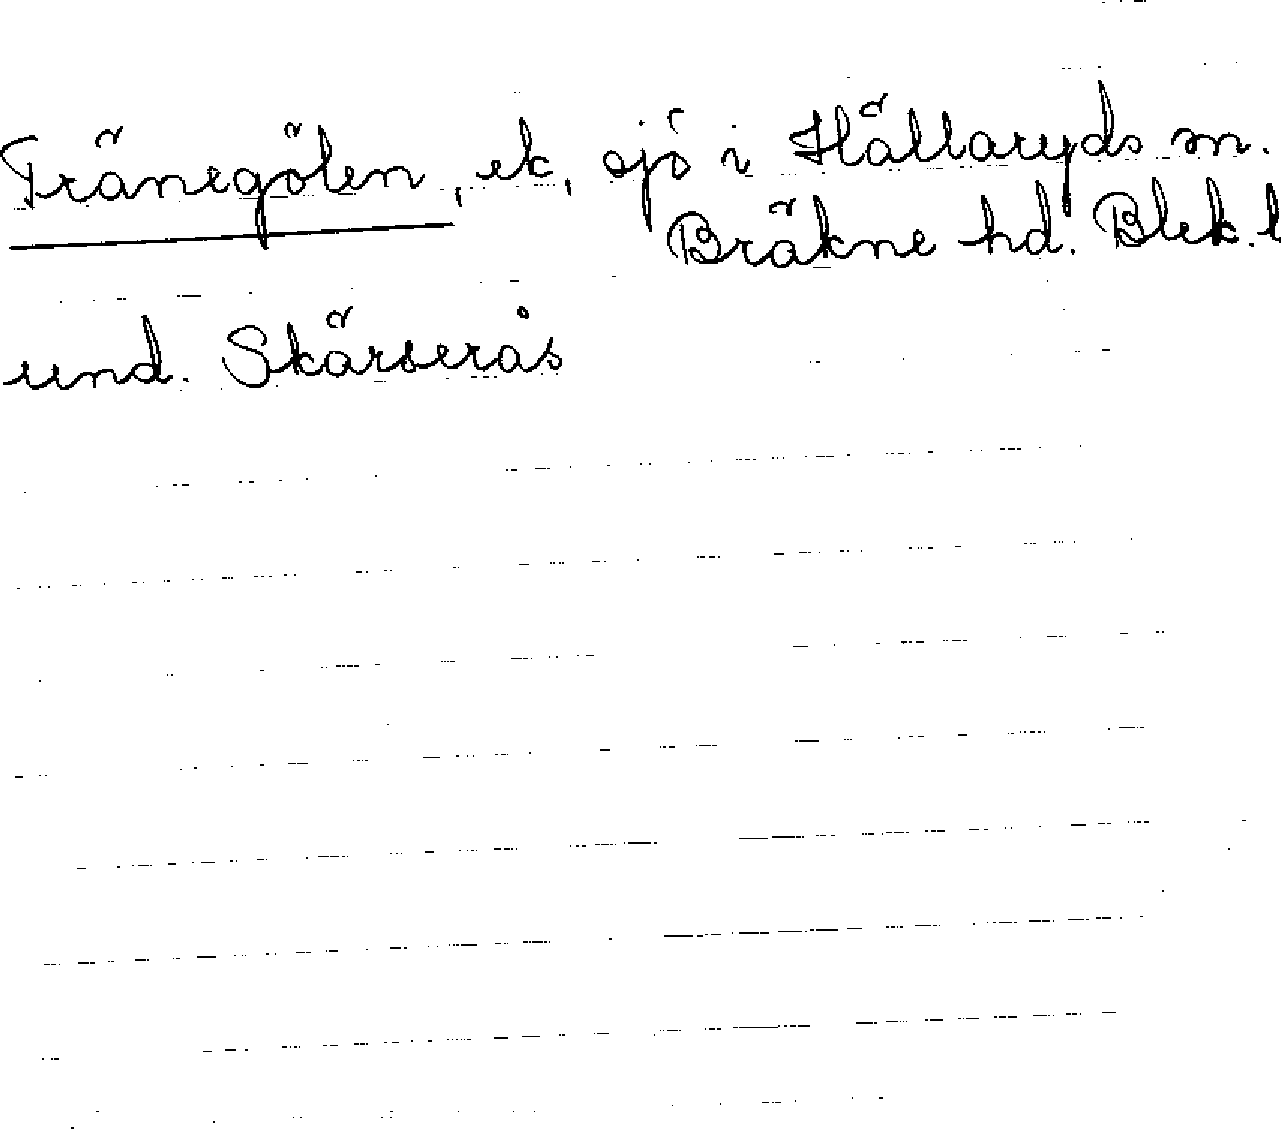 Tränegölen, ek, sjö i Hällaryds sn.
Bräkne hd. Blek. l
und. Skärserås